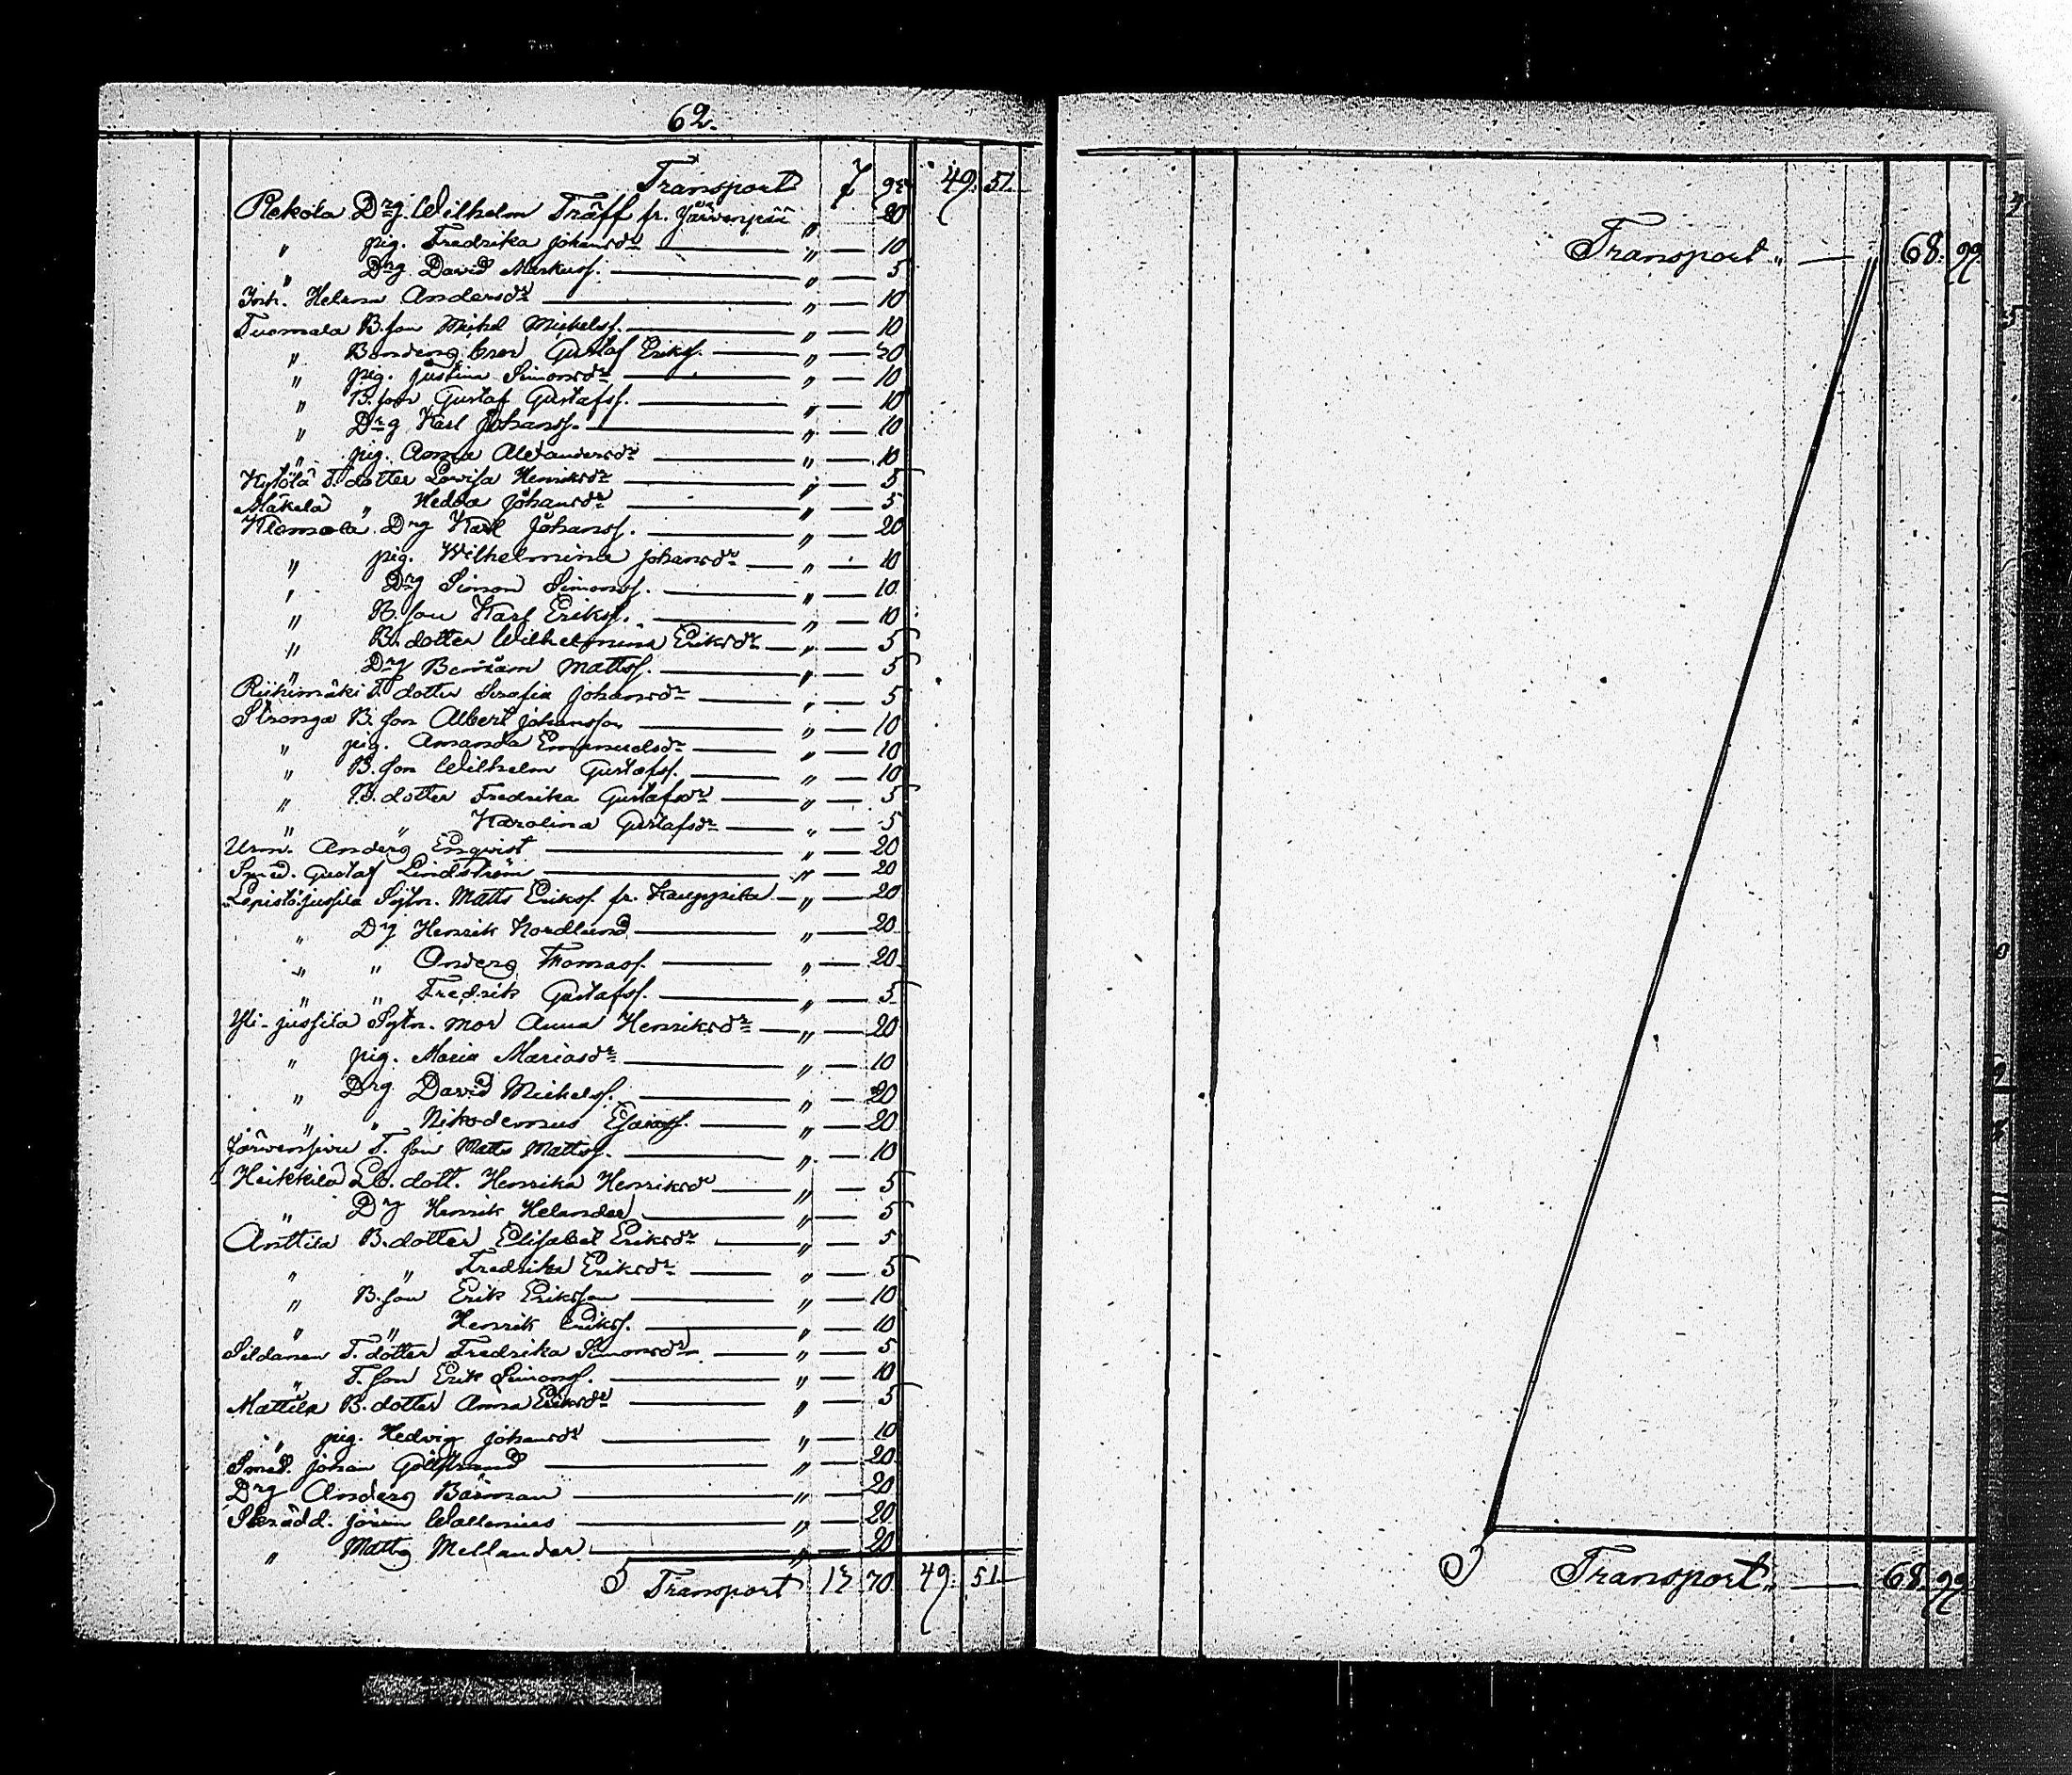 62.
Transport 7 95 49. 51.
Rekola Drg. Wilhelm Träff fr. Järvenpää " 20
" pig. Fredrika Johansdr " — 10
" Drg David Markuss. " — 5
Inh. Helena Andersdr " — 10
Tuomala B. son Mikel Mickelss. " — 10
" Bondens bror Gustaf Erikss. " — 20
" pig. Justina Simonsdr " — 10
" B. son Gustaf Gustafss. " — 10
" Drg Karl Johanss. " — 10
" pig. Anna Alexandersdr " — 10
T. dotter Lovisa Henriksdr " — 5
Mäkelä " Hedda Johansdr " — 5
Klemola Drg Karl Johanss. " — 20
" pig. Wilhelmina Johansdr " — 10
" Drg Simon Simonss. " — 10
" B. son Karl Erikss. " — 10
" B. dotter Wilhelmina Eriksdr " — 5
" Drg Beniam Mattss. " — 5
Riihimäki T. dotter Serafia Johansdr " — 5
Stronga B. son Albert Johansson " — 10
" pig. Amanda Emanuelsdr " — 10
" B. son Wilhelm Gustafss. " — 10
" B. dotter Fredrika Gustafsdr " — 5
" " Karolina Gustafsdr " — 5
Urm. Anders Enqvist " — 20
Smed. Gustaf Lindström " — 20
Lepistöjussila Sytn. Matts Erikss. fr. Kauppila " — 20
" Drg Henrik Nordlund " — 20
" " Anders Thomass. " — 20
" " Fredrik Gustafss. " — 5
Yli-jussila Sytn. mor Anna Henriksdr " — 20
" pig. Maria Mariasdr " — 10
" Drg David Mickelss. " — 20
" " Nikodemus Esaiass. " — 20
Järvensivu T. son Matts Mattss. " — 10
Heikkilä Lb. dott. Henrika Henriksdr " — 5
" Drg Henrik Helander " — 5
Anttila B. dotter Elisabet Eriksdr " — 5
" " Fredrika Eriksdr " — 5
" B. son Erik Eriksson " — 10
" " Henrik Erikss. " — 10
Sildanen T. dotter Fredrika Simonsdr " — 5
" T. son Erik Simonss. " — 10
Mattila B. dotter Anna Eriksdr " — 5
" pig. Hedvig Johansdr " — 10
Smed. Johan " — 20
Drg Anders Bärman " — 20
Skrädd. Johan Wallenius " — 20
" Matts Mellander " — 20
Transport 13 70. 49. 51.
Transport " — " 68. 99.
Transport " — 68. 99.